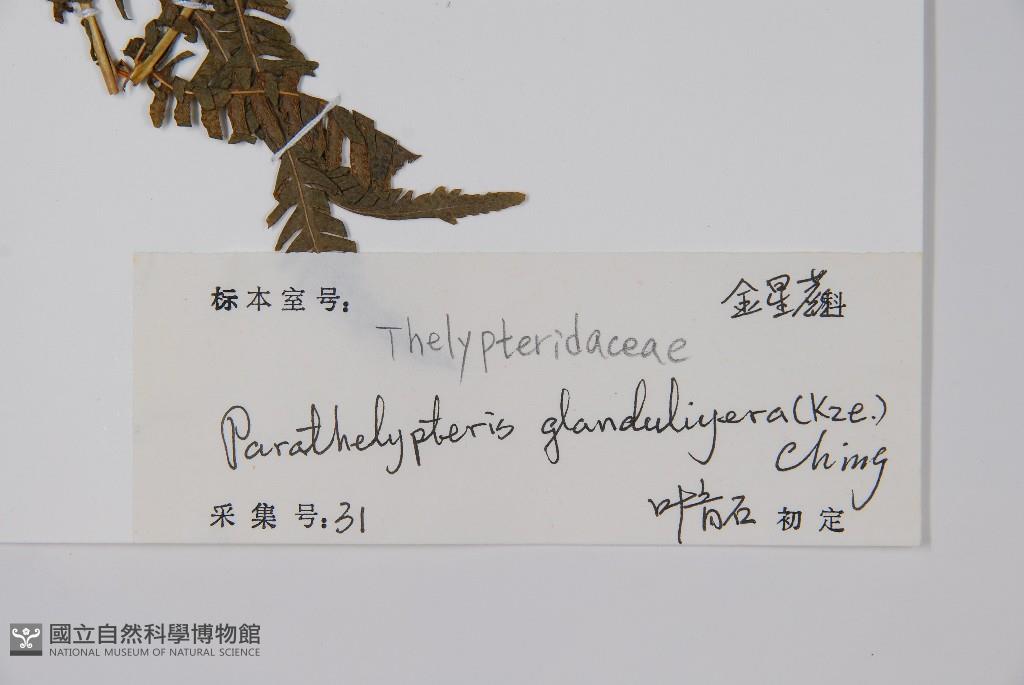 标本室号:
金星蕨科
Thelypteridaceae
Parathelypteris glanduliyera (Kze.)
Ching
采集号:31
叶育石 初定
國立自然科學博物館
NATIONAL MUSEUM OF NATURAL SCIENCE